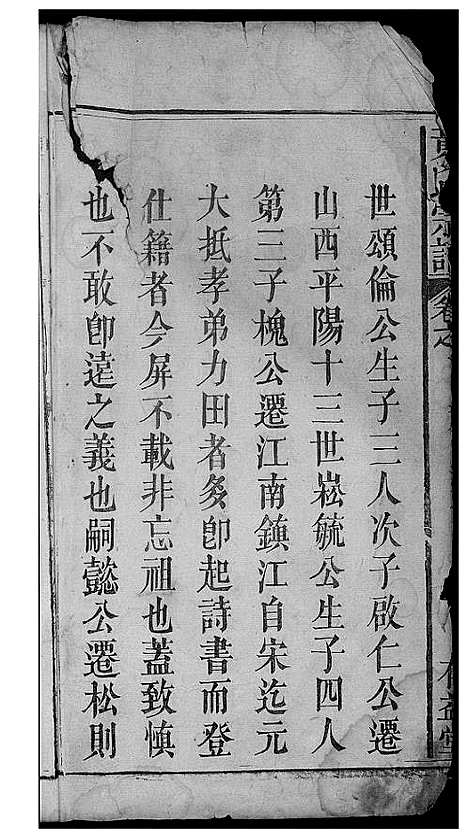 世頌倫公生子三人次子啟仁公遷
山西平陽十三世崧毓公生子四人
第三子槐公遷江南鎮江自宋迄元
大抵孝弟力田者多卽起詩書而登
仕籍者今屏不載非忘祖也蓋致慎
也不敢卽遠之義也嗣懿公遷松則